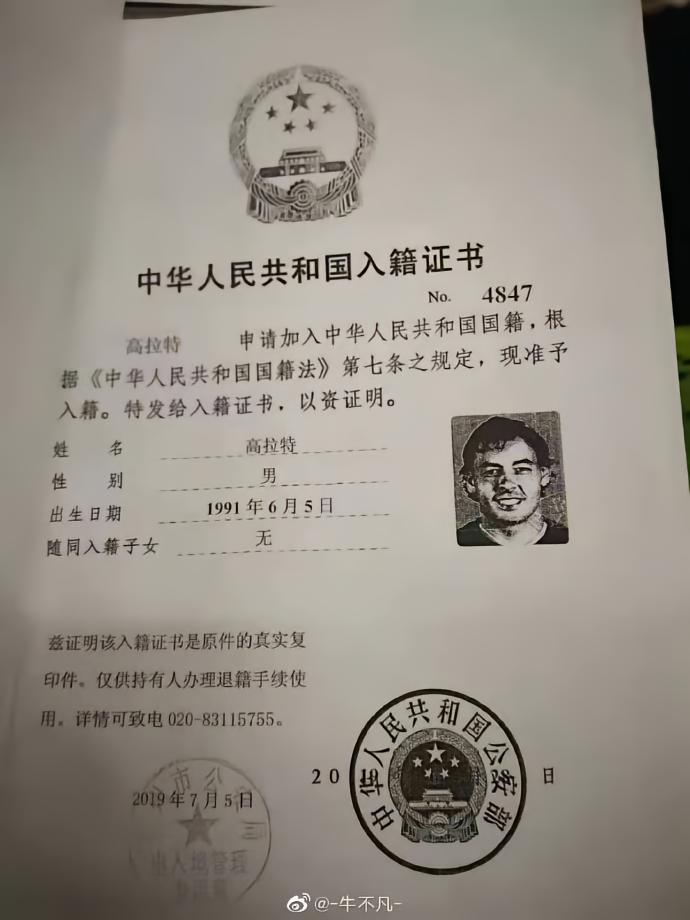 中华人民共和国入籍证书
No. 4847
高拉特 申请加入中华人民共和国国籍，根
据《中华人民共和国国籍法》第七条之规定，现准予
入籍。特发给入籍证书，以资证明。
姓 名 高拉特
性 别 男
出生日期 1991年6月5日
随同入籍子女 无
兹证明该入籍证书是原件的真实复
印件。仅供持有人办理退籍手续使
用。详情可致电 020-83115755。
2019年7月5日
市公
出入境管理
20 日
中华人民共和国公安部
@-牛不凡-